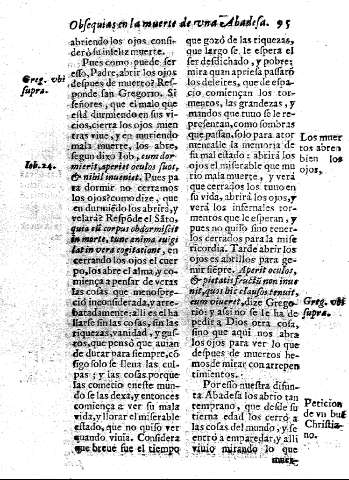 Obsequias en la muerte de vna Abadesa. 95
abriendo los ojos consi-
deró su infeliz muerte.
Pues como puede ser
esso, Padre, abrir los ojos
despues de muerto? Res-
ponde san Gregorio. Si
señores, que el malo que
está durmiendo en sus vi-
cios, cierra los ojos mien
tras viue, y en muriendo
mala muerte, los abre,
segun dizo Iob, cum dor-
mierit, aperiet oculos suos,
& nihil inueniet. Pues pa
ra dormir no cerramos
los ojos? como dize, que
en durmiẽdo los abrirá, y
velará? Respõde el Sãto,
quia cũ corpus obdormiscit
in morte, tunc anima euigi
lat in vera cogitatione, en
cerrando los ojos el cuer
po, los abre el alma, y co-
miença a pensar de veras
las cosas que menospre-
ció inconsiderada, y arre-
batadamente: alli es el ha
llarse sin las cosas, sin las
riquezas, vanidad, y gus-
tos, que pensó que auian
de durar para siempre, cõ
sigo solo se lleua las cul-
pas; y las cosas porque
las cometio en este mun-
do se las dexa, y entonces
comiença a ver su mala
vida, y llorar el miserable
estado, que no quiso ver
quando viuia. Considera
que breue fue el tiempo
que gozó de las riquezas,
que largo se le espera el
ser desdichado, y pobre;
mira quan apriesa passarõ
los deleites, que de espa-
cio comiençan los tor-
mentos, las grandezas, y
mandos que tuuo se le re-
presentan, como sombras
que passan, solo para ator
mentalle la memoria de
su mal estado: abrirá los
ojos el miserable que mu
rio mala muerte, y verá
que cerrados los tuuo en
su vida, abrirá los ojos, y
verá los infernales tor-
mentos que le esperan, y
pues no quiso sino tener-
los cerrados para la mise
ricordia. Tarde abrir los
ojos es abrillos para ge-
mir siẽpre. Aperit oculos,
& pietatis fructũ non inue
nit, quos hic clausos tenuit,
cum viueret, dize Grego-
rio; y assi no se le ha de
pedir a Dios otra cosa,
sino que aqui nos abra
los ojos para ver lo que
despues de muertos he-
mos de mirar con arrepen
timientos.
Por esso nuestra difun-
ta Abadesa los abrio tan
temprano, que desde su
tierna edad los cerró a
las cosas del mundo, y se
encerró a emparedar, y alli
viuio mirando lo que
Greg. vbi
supra.
Iob. 24.
Los muer
tos abren
bien los
ojos,
Greg. vbi
supra.
Peticion
de vn buẽ
Christia-
no.